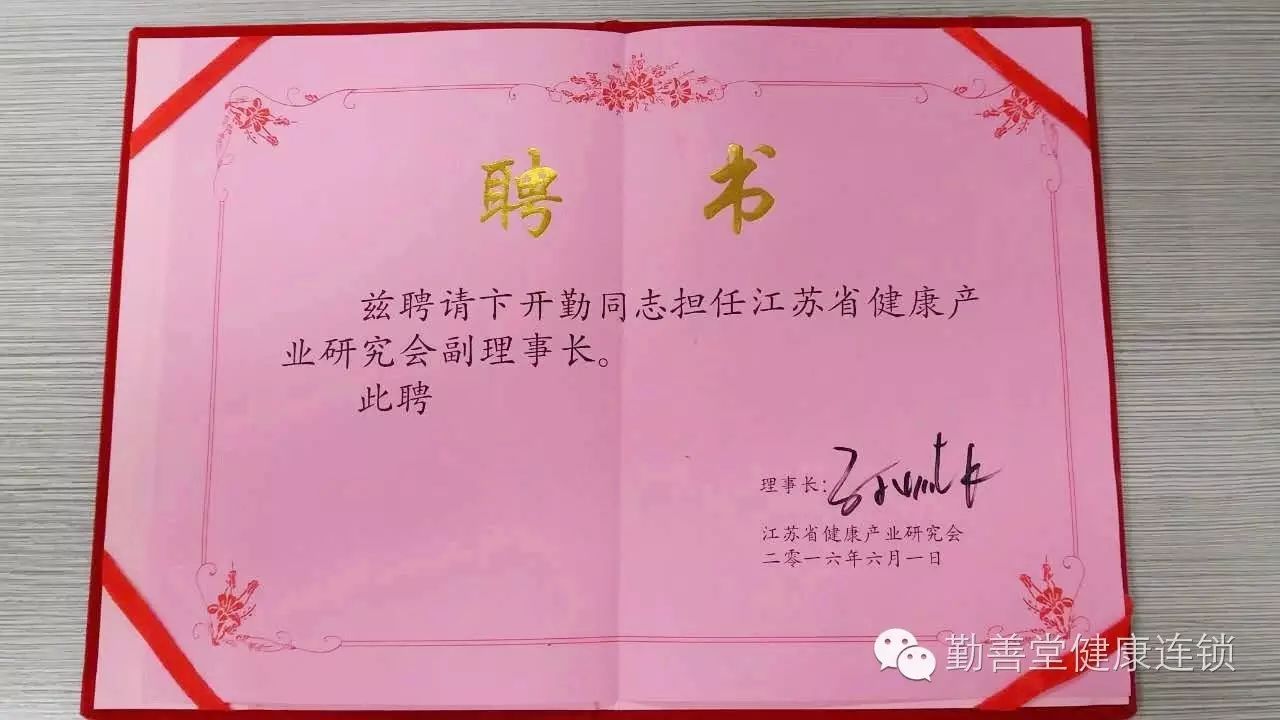 聘书
兹聘请卞开勤同志担任江苏省健康产
业研究会副理事长。
此聘
理事长:
江苏省健康产业研究会
二零一六年六月一日
勤善堂健康连锁